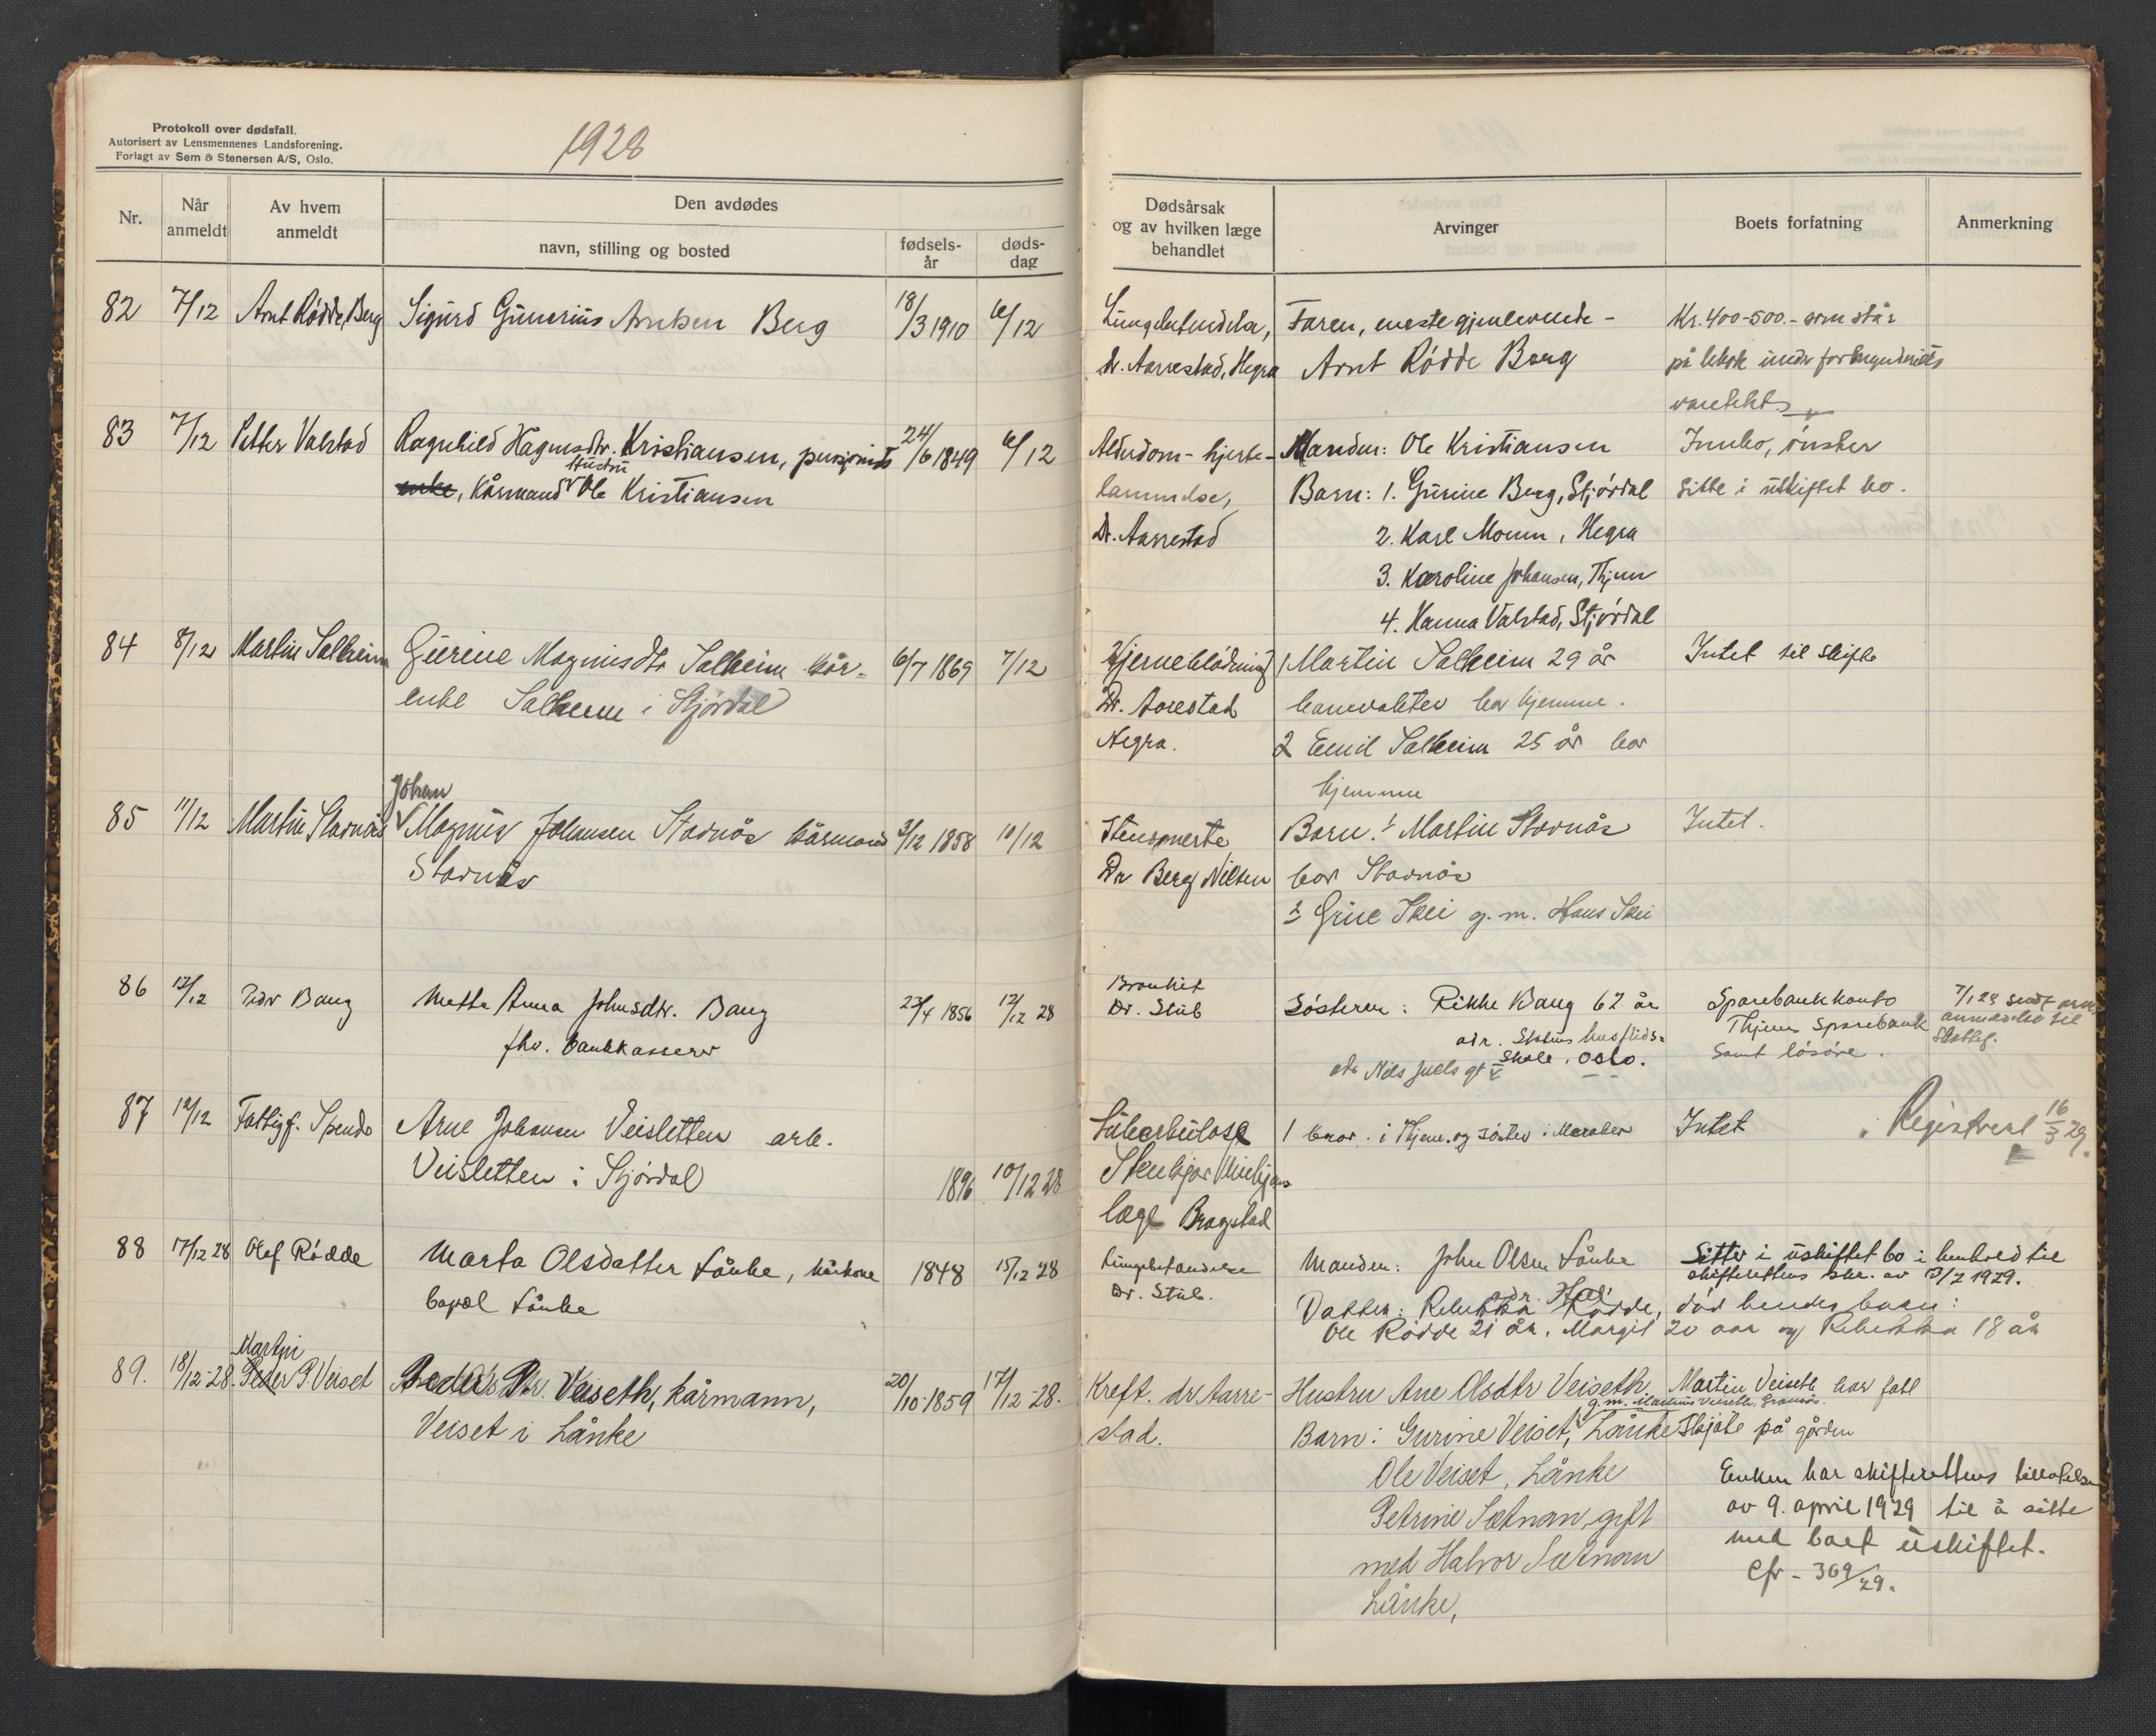 Protokoll over dødsfall.
Autorisert av Lensmennenes Landsforening.
Forlagt av Sem & Stenersen A/S, Oslo.
1928
Nr.
Når anmeldt
Av hvem anmeldt
Den avdødes
navn, stilling og bosted
fødsels-år
døds-dag
Dødsårsak og av hvilken læge behandlet
Arvinger
Boets forfatning
Anmerkning
82 7/12 Arnt Rødde, Berg Sigurd Gunerius Arntsen Berg 18/3 1910 6/12 Lungebetendelse, Faren, eneste gjenlevende - Kr. 400-500.- som står
dr. Aarrestad, Hegra Arnt Rødde Berg på bok under formynderiets
varetekt.
83 7/12 Petter Valstad Ragnhild Hågensdtr. Kristiansen, pensjonists 24/6 1849 6/12 Alderdom - hjerte- Manden: Ole Kristiansen Innbo, ønsker
hustru
enke, Kårmand Ole Kristiansen lammelse, Barn: 1. Gurine Berg, Stjørdal Sitte i uskiftet bo.
Dr. Aarrestad 2. Karl Moum, Hegra
3. Karoline Johansen, Thjem
4. Hanna Valstad, Stjørdal
84 8/12 Martin Salheim Gurine Magnusdtr Salheim kår- 6/7 1869 7/12 Hjerneblødning 1 Martin Salheim 29 år Intet til skifte
enke Salheim i Stjørdal Dr. Aarestad banevokter bor hjemme.
Hegra. 2 Emil Salheim 25 år bor
hjemme
Johan
85 11/12 Martin Stadnås Magnus Johansen Stadnås kårmand 3/12 1858 10/12 Stensmerte Barn: 1 Martin Stadnås Intet.
Stadnås Dr Berg Nilsen bor Stadnås
2 Grine Skei g. m. Hans Skei
86 12/12 Pedr Bang Mette Anna Johnsdtr. Bang 23/4 1856 12/12 28 Bronkit Søsteren: Rikke Bang 62 år Sparebankkonto 7/1 29 sendt
fhv. bankkasserer Dr. Stub adr. Statens husflids- Thjems Sparebank anmeldelse til
adr Nils Juels gt skole, Oslo. samt løsøre. Skattef.
87 12/12 Fattigf. Spends Arne Johansen Veisletten arb. Tuberkulose 1 bror i Thjem og søster i Meraker Intet Registrert 16/3 29.
Veisletten i Stjørdal 1896 10/12 28
læge Bragstad
88 17/12 28 Olaf Rødde Marta Olsdatter Lånke, kårkone 1848 15/12 28 Lungebetandelse Manden: John Olsen Lånke Sitter i uskiftet bo i henhold til
bopæl Lånke Dr. Stub. skifterettens skr. av 13/2 1929.
Datter: Rebekka Rødde, død hendes barn:
Ole Rødde 21 år. Margit 20 aar og Rebekka 18 år
Martin
89. 18/12-28. Peter P. Veiset Peder Pr. Veiseth, kårmann, 20/10-1859 17/12-28. Kreft. dr Aarre- Hustru Ane Olsdtr Veiseth. Martin Veiseth har fått
g. m. Martinus Veiseth,
Veiset i Lånke stad. Barn: Gurine Veiset, Lånke Skjøte på gården
Ole Veiset, Lånke Enken har skifterettens tillatelse
Petrine Sætnan, gift av 9. april 1929 til å sitte
med Halvor Sætnan med boet uskiftet.
Lånke, Cfr - 369/29.